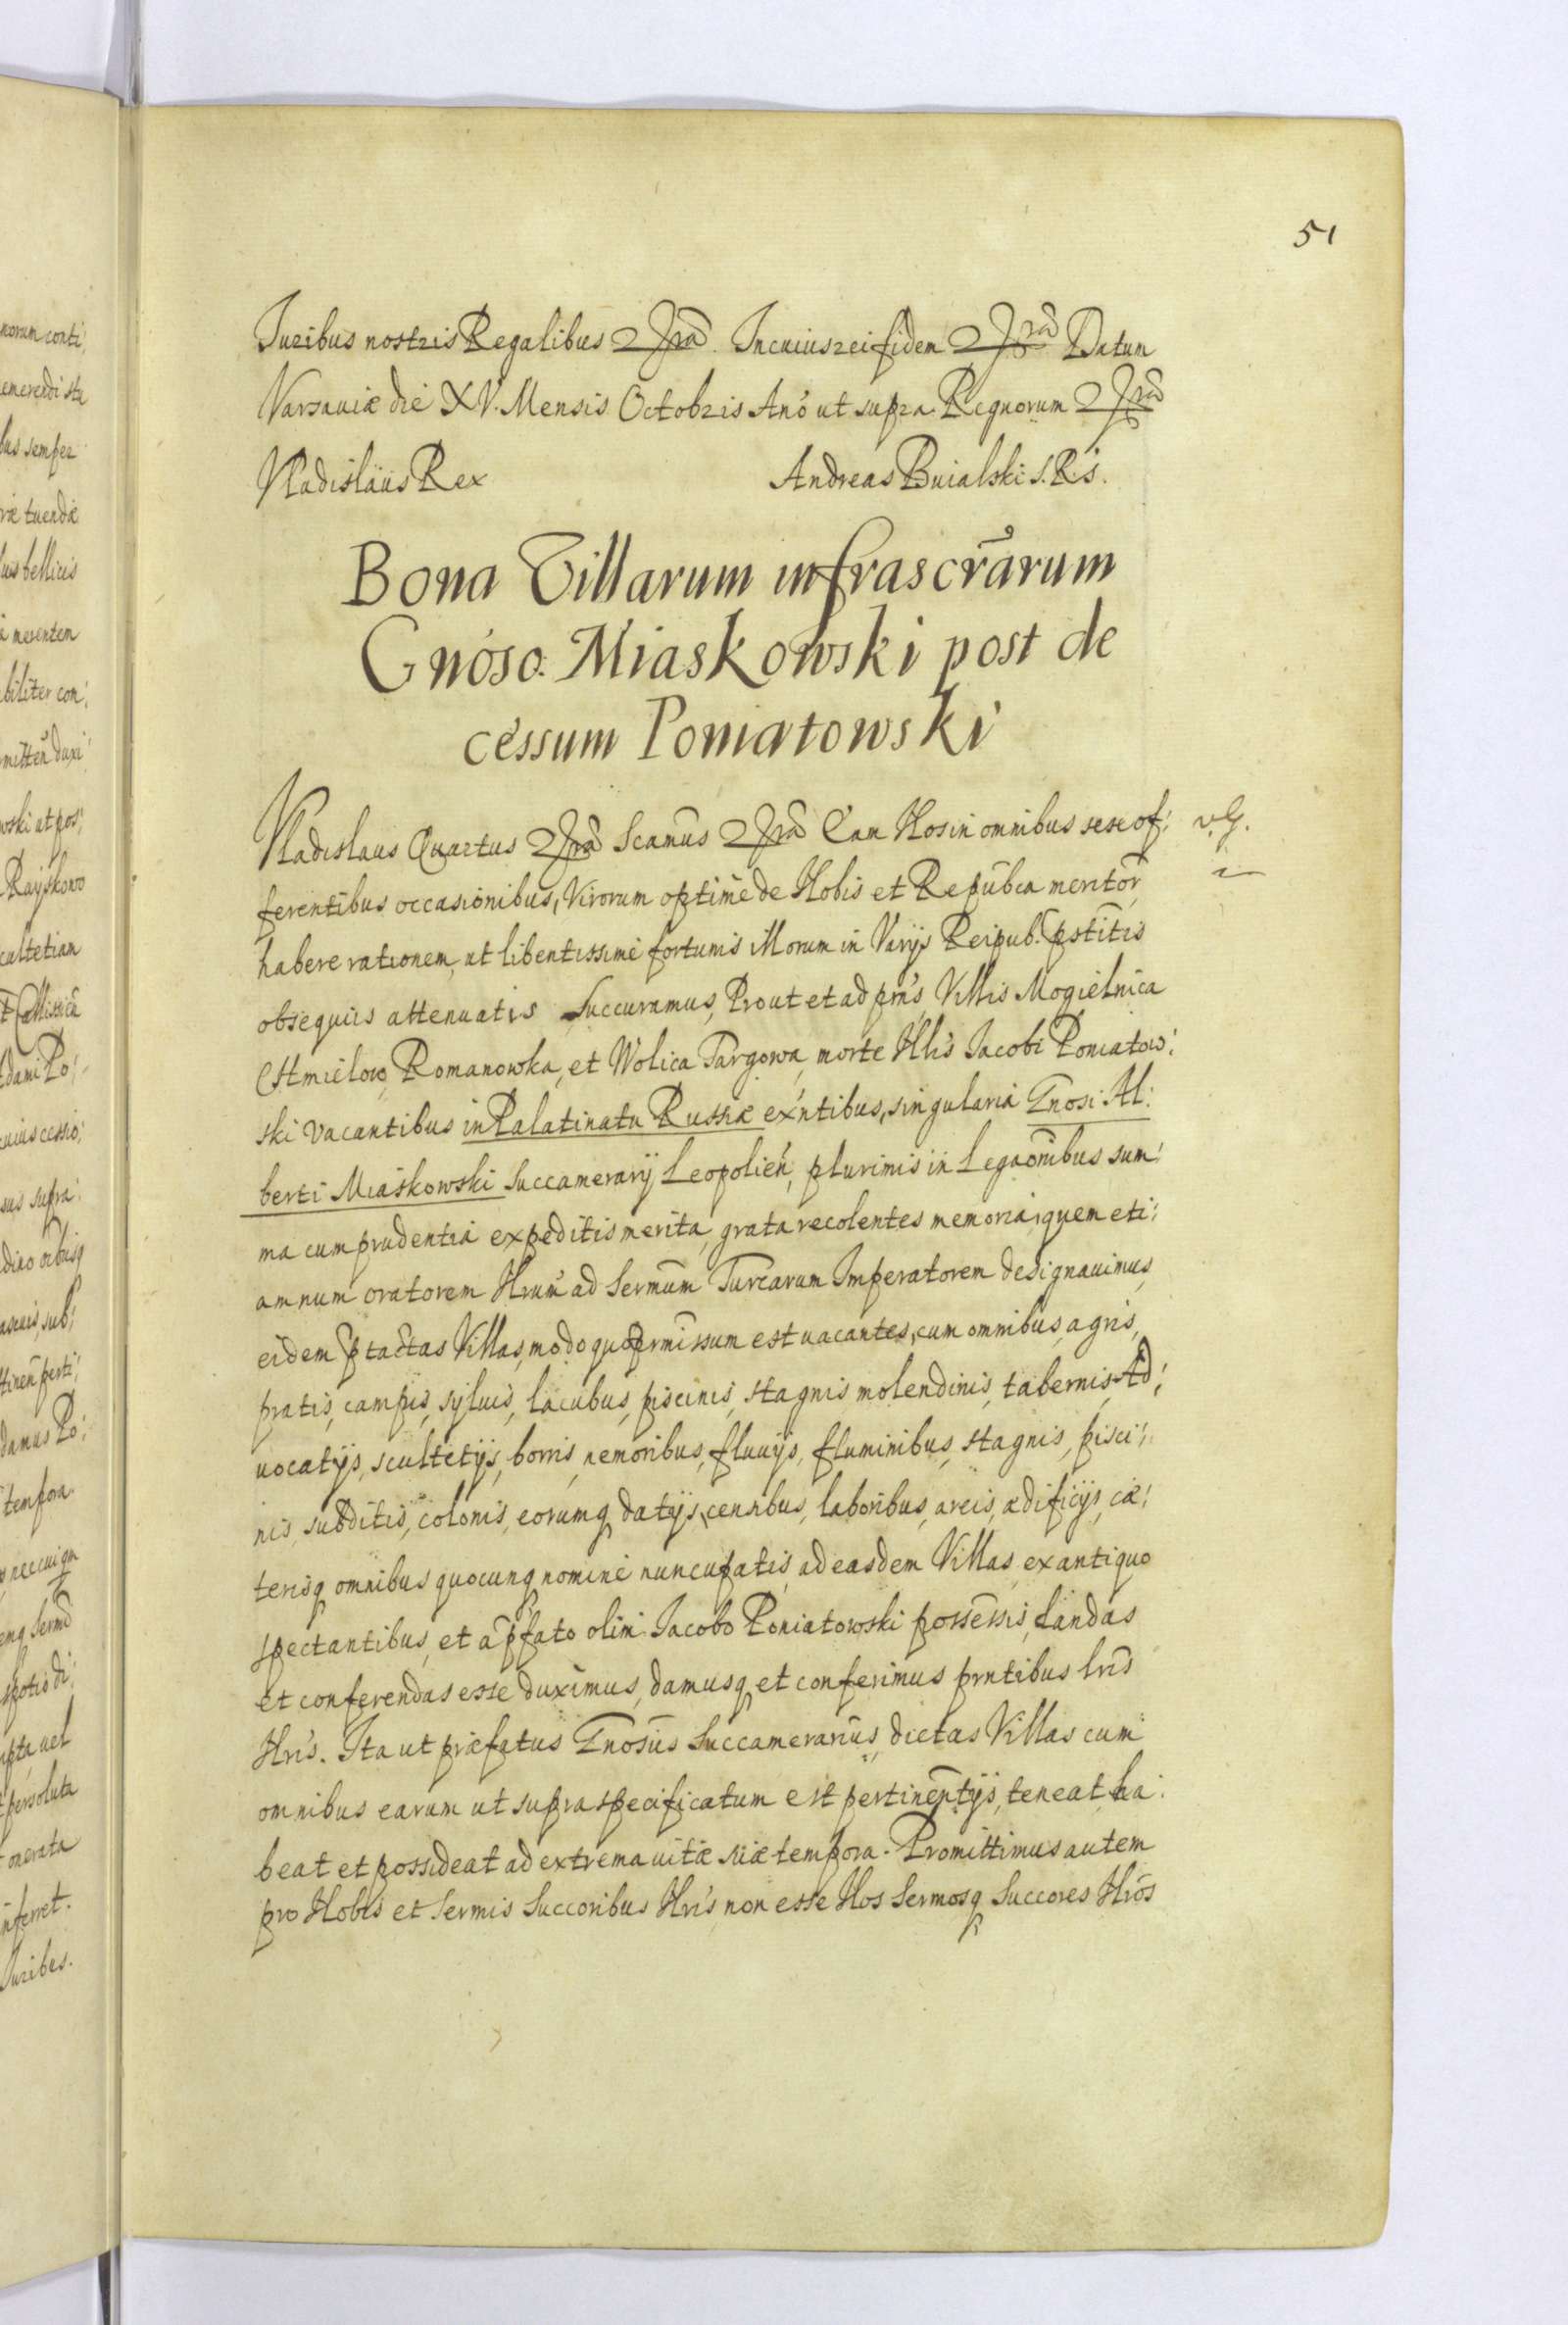 51
Iuribus nostris Regalibus &c̃ra. In cuius rei fidem &c̃ra Datum
Varsauiæ die XV. Mensis Octobris Anó ut supra. Regnorum &c̃ra
Vladislaüs Rex Andreas Buialski S. R. s.
Bona Villarum infrascr̃arum
Gnóso. Miaskowski post de
cessum Poniatowski
Vladislaus Quartus &c̃ra Scamũs &c̃ra Cum Nos in omnibus sese of: v. G.
ferentibus occasionibus, Virorum optime de Nobis et Repũbca meritor̃
habere rationem, ut libentissime fortunis illorum in Varijs Reipub. p̃stitis
obsequiis attenuatis Succuramus, Prout et ad pns̃ Villis Mogielnica
Chmielow, Romanowka, et Wolica Targowa, morte Nlis Iacobi Poniatow:
ski vacantibus in Palatinatu Russiæ exńtibus, singularia Gnosi Al:
berti Miaskowski Succamerarij Leopolień, plurimis in Legaõnibus sum:
ma cum prudentia expeditis merita, grata recolentes memoria, quem eti:
am num oratorem Nrum̃ ad Sermũm Turcarum Imperatorem designauimus,
eidem p̃tactas Villas, modo quo p̃rmissum est uacantes, cum omnibus, agris,
pratis, campis, syluis, lacubus, piscinis, stagnis molendinis, tabernis, Ad:
uocatijs, scultetijs, borris, nemoribus, fluuijs, fluminibus, stagnis, pisci:
nis, subditis, colonis, eorumq datijs, censibus, laboribus, areis, ædificijs, cæ:
terisq omnibus quocunq nomine nuncupatis, ad easdem Villas, ex antiquo
spectantibus, et a p̃fato olim Iacobo Poniatowski possessis, dandas
et conferendas esse duximus, damusq et conferimus prntibus lrĩs
Nrĩs. Ita ut præfatus Gnosũs Succamerarius, dictas Villas cum
omnibus earum ut supra specificatum est pertinentijs, teneat ha:
beat et possideat ad extrema uitæ suæ tempora. Promittimus autem
pro Nobis et Sermis Succoribus Nrĩs non esse Nos Sermosq Succores Nrõs